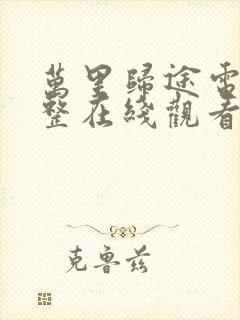 萬里歸途電
整在綫觀看
克鲁兹